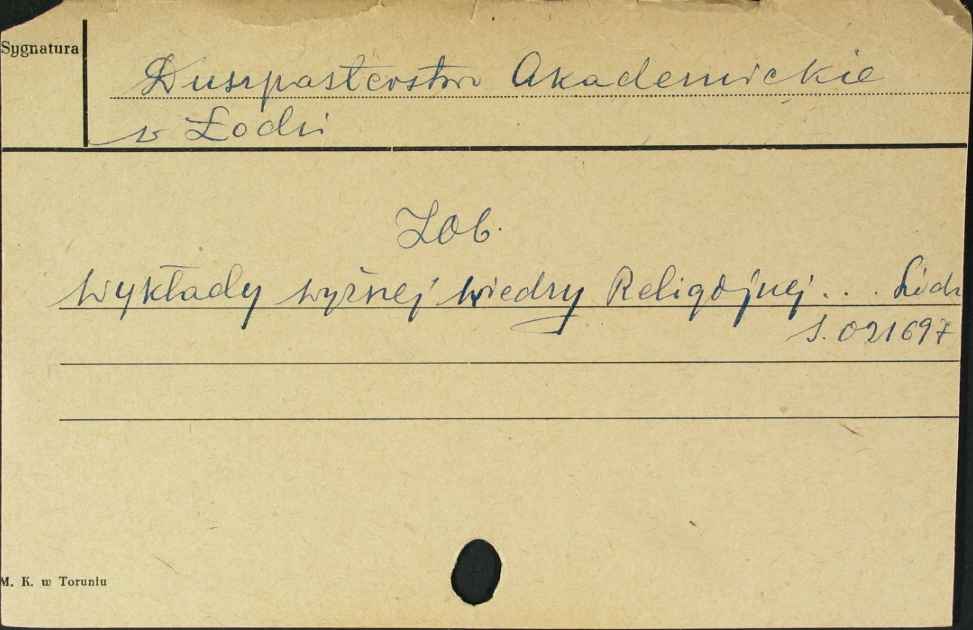 Sygnatura
Duszpasterstwo Akademickie
w Łodzi
Zob.
Wykłady wyższej wiedzy Religijnej... Łódź
S. 021697
M. K. w Toruniu